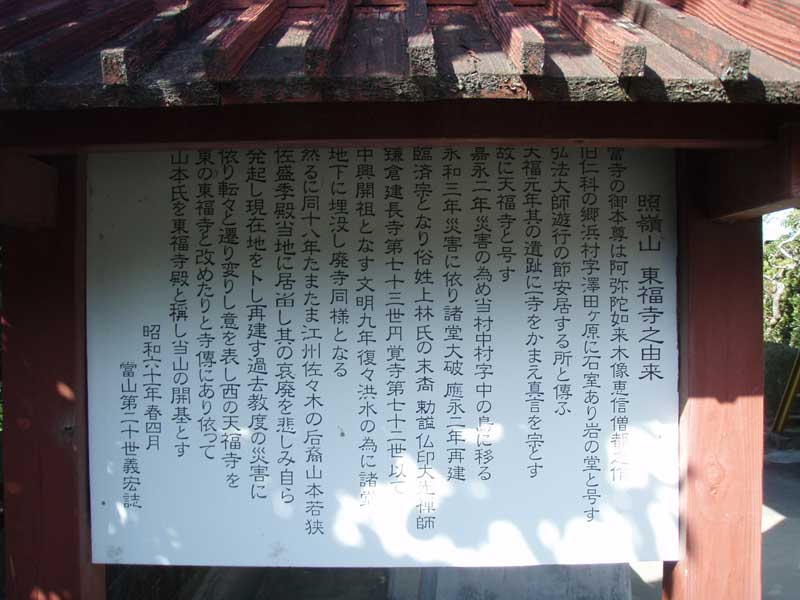 照嶺山 東福寺之由来
當寺の御本尊は阿弥陀如来木像恵信僧都之作
旧仁科の郷浜村字澤田ヶ原に石室あり岩の堂と号す
弘法大師遊行の節安居する所と傳ふ
天福元年其の遺趾に一寺をかまえ真言を宗とす
故に天福寺と号す
嘉永二年災害の為め当村中村字中の島に移る
永和三年災害に依り諸堂大破 應永二年再建
臨済宗となり俗姓上林氏の末裔 勅諡仏印大光禅師
鎌倉建長寺第七十三世円覚寺第七十二世以て
中興開祖となす文明九年復々洪水の為に諸堂
地下に埋没し廃寺同様となる
然るに同十八年たまたま江州佐々木の后裔山本若狭
佐盛季殿当地に居し其の哀廃を悲しみ自ら
発起し現在地を卜し再建す過去教度の災害に
依り転々と遷り変りし意を表し西の天福寺を
東の東福寺と改めたりと寺傳にあり依って
山本氏を東福寺殿と稱し当山の開基とす
昭和六十一年春四月
當山第二十世義宏誌